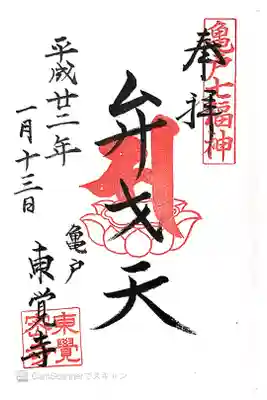 亀戸七福神
奉拝
弁才天
平成廿二年
一月十三日
亀戸
東覚寺
東覺
CamScannerでスキャン